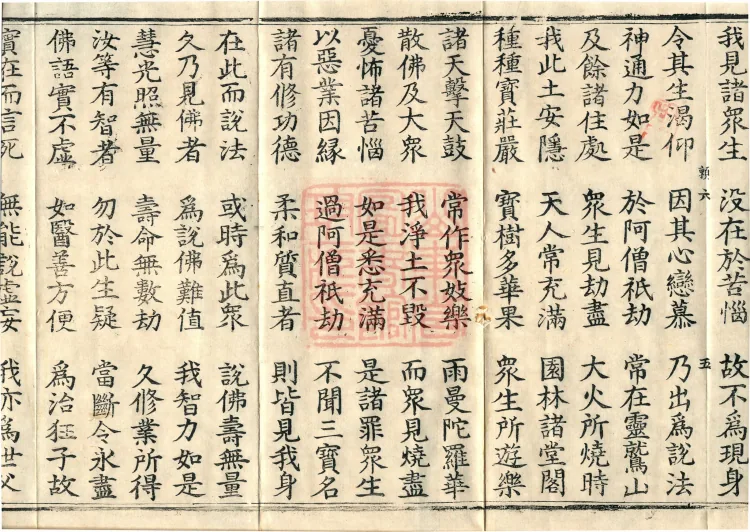 我見諸衆生 没在於苦惱 故不爲現身
令其生渴仰 因其心戀慕 乃出爲說法
神通力如是 於阿僧祇劫 常在靈鷲山
及餘諸住處 衆生見劫盡 大火所燒時
我此土安隱 天人常充滿 園林諸堂閣
種種寶莊嚴 寶樹多華果 衆生所遊樂
諸天擊天鼓 常作衆妓樂 雨曼陀羅華
散佛及大衆 我淨土不毀 而衆見燒盡
憂怖諸苦惱 如是悉充滿 是諸罪衆生
以惡業因緣 過阿僧祇劫 不聞三寶名
諸有修功德 柔和質直者 則皆見我身
在此而說法 或時爲此衆 說佛壽無量
久乃見佛者 爲說佛難值 我智力如是
慧光照無量 壽命無數劫 久修業所得
汝等有智者 勿於此生疑 當斷令永盡
佛語實不虛 如醫善方便 爲治狂子故
實在而言死 無能說虛妄 我亦爲世父
六
五